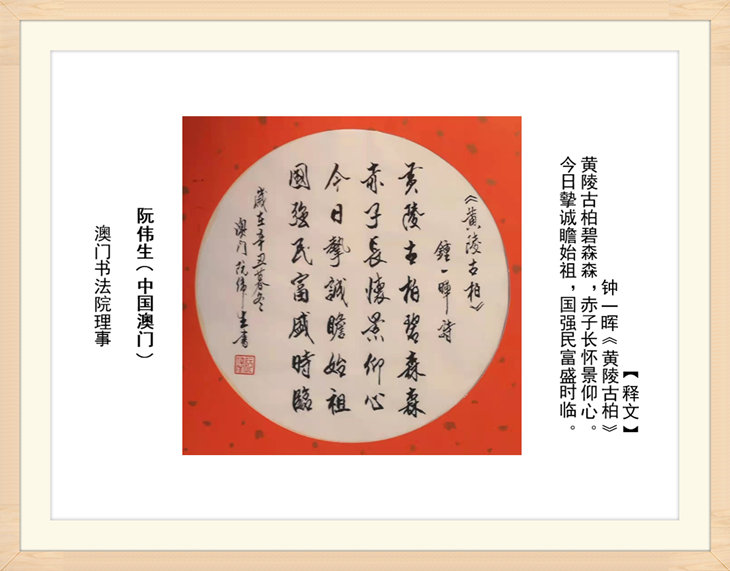 【释文】
钟一晖《黄陵古柏》
黄陵古柏碧森森，赤子长怀景仰心。
今日摯诚瞻始祖，国强民富盛时临。
《黄陵古柏》
鍾一暉詩
黄陵古柏碧森森
赤子長懷景仰心
今日摯誠瞻始祖
國強民富盛時臨
歲在辛丑暮冬
澳门阮偉生書
阮伟生（中国澳门）
澳门书法院理事